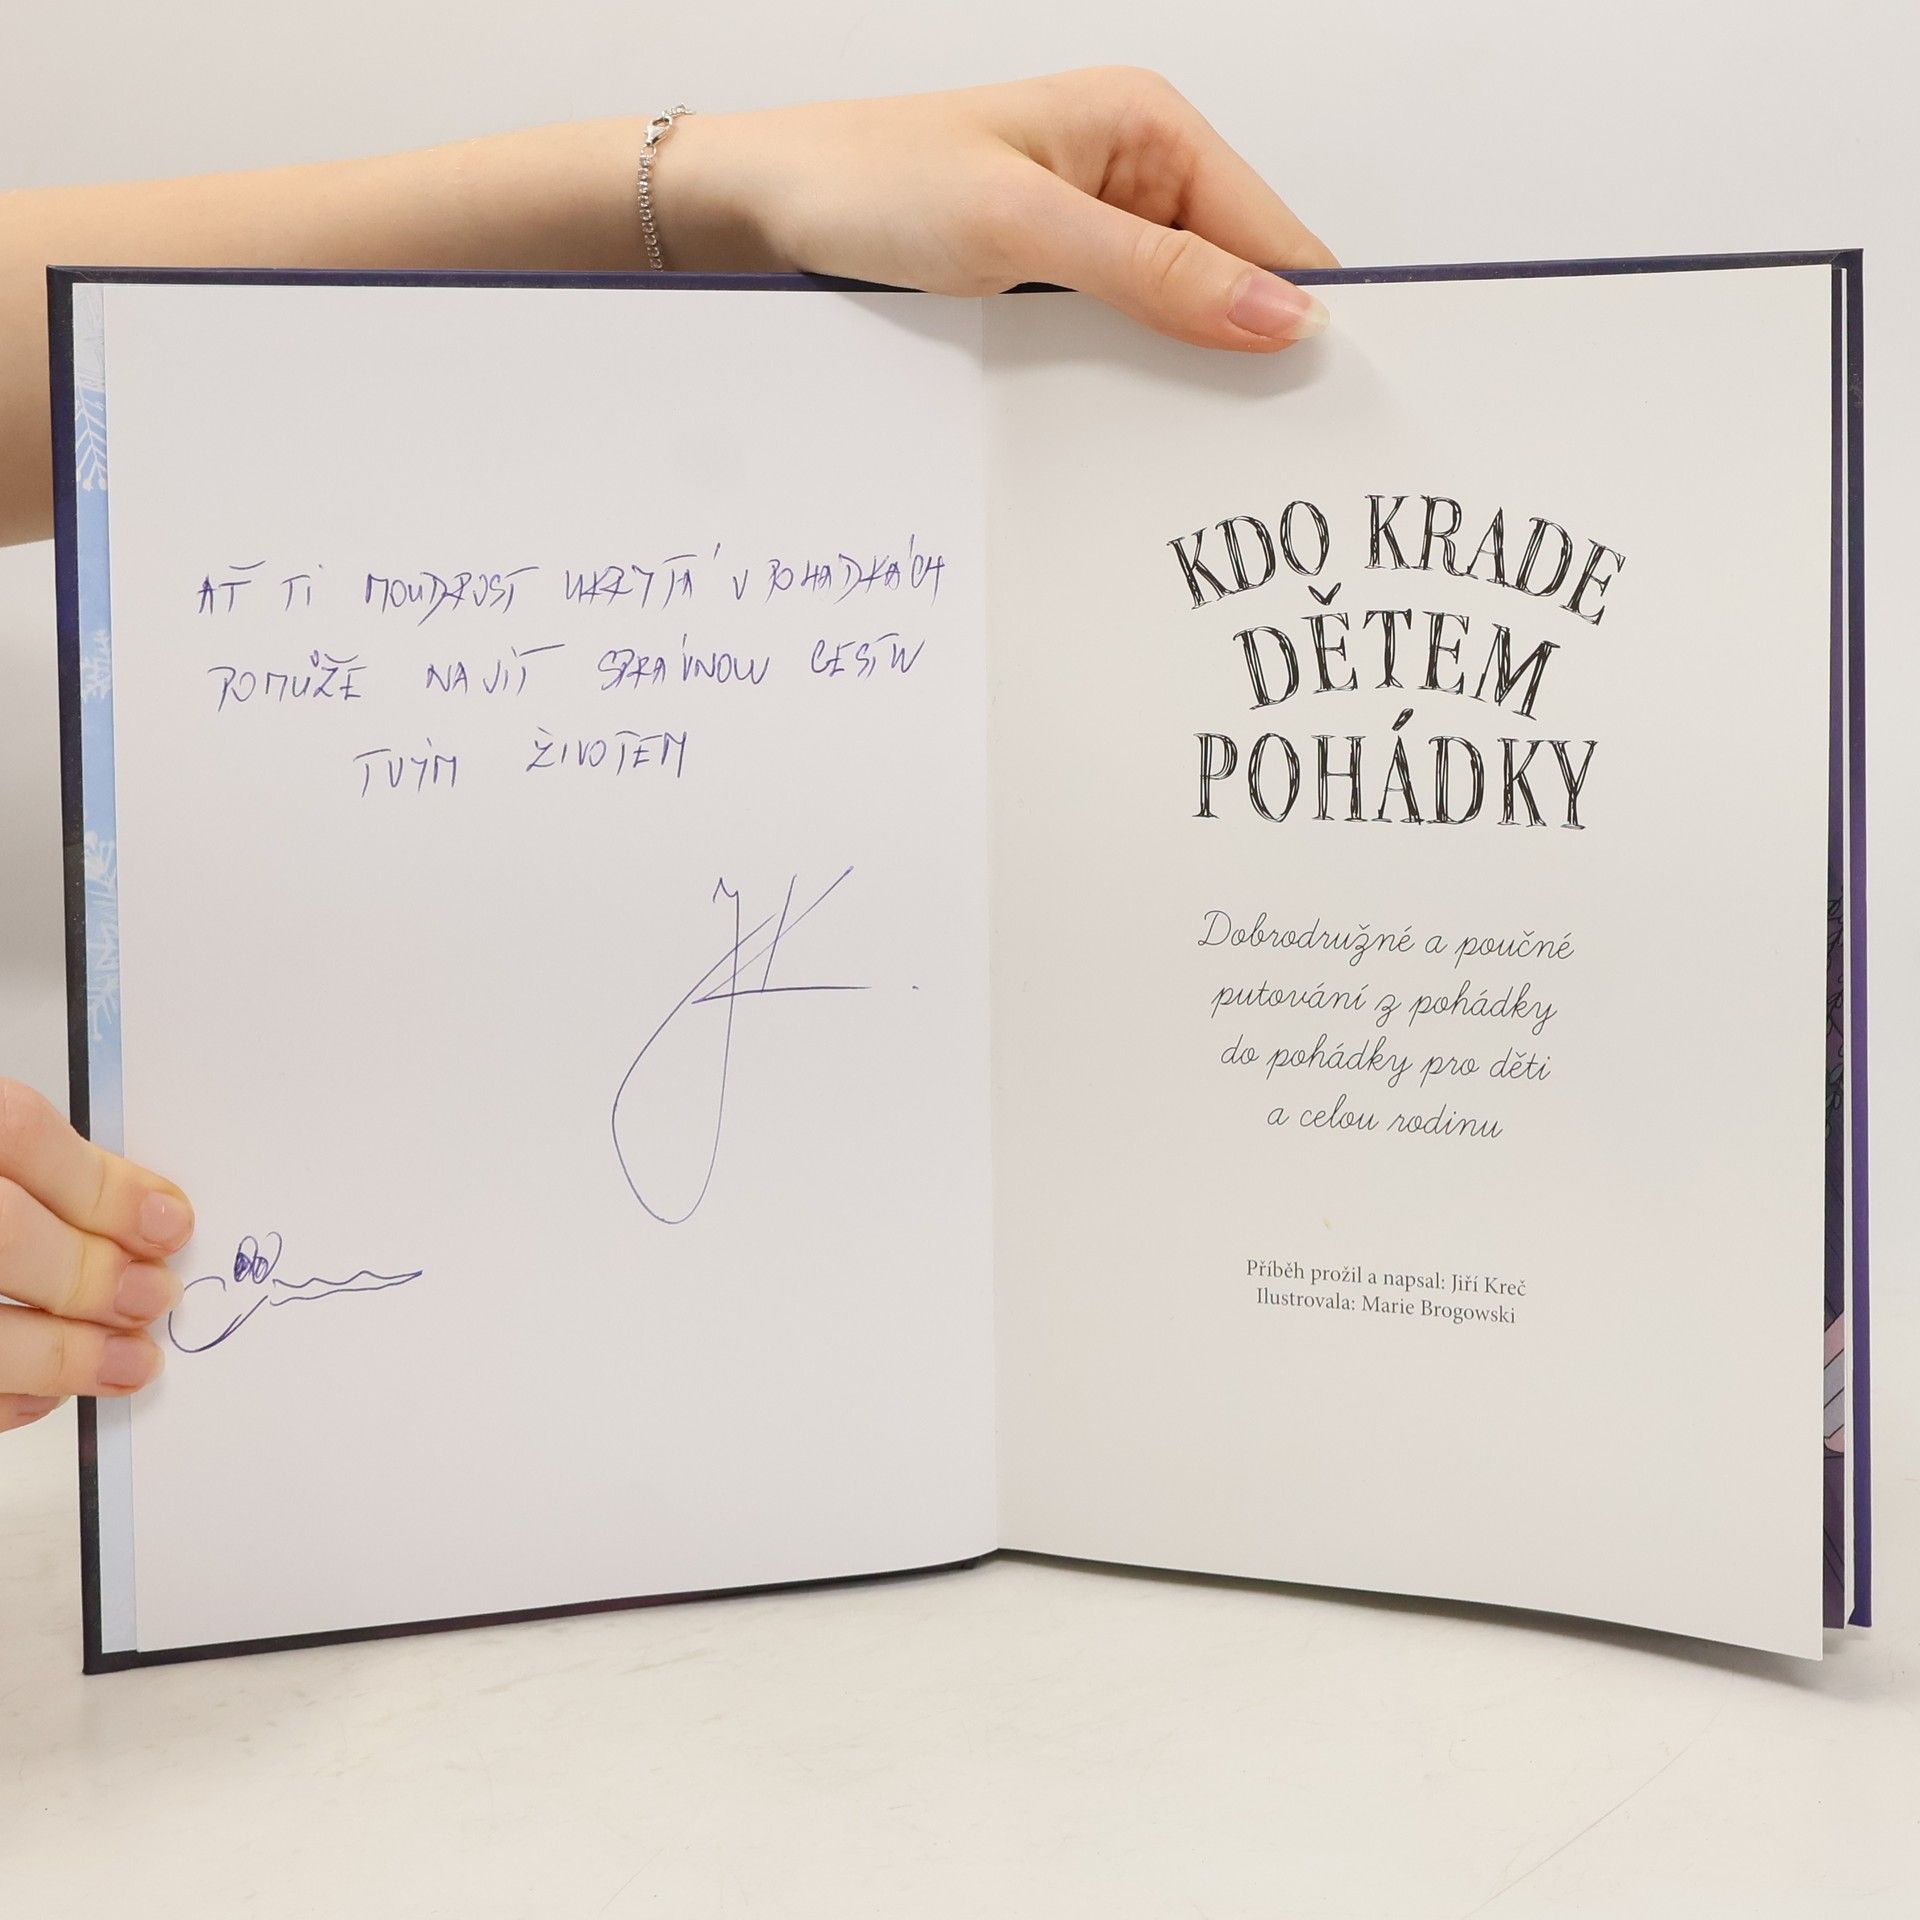 AŤ TI MOUDROST UKRYTÁ V POHÁDKÁCH
POMŮŽE NAJÍT SPRÁVNOU CESTU
TVÝM ŽIVOTEM
KDO KRADE
DĚTEM
POHÁDKY
Dobrodružné a poučné
putování z pohádky
do pohádky pro děti
a celou rodinu
Příběh prožil a napsal: Jiří Kreč
Ilustrovala: Marie Brogowski